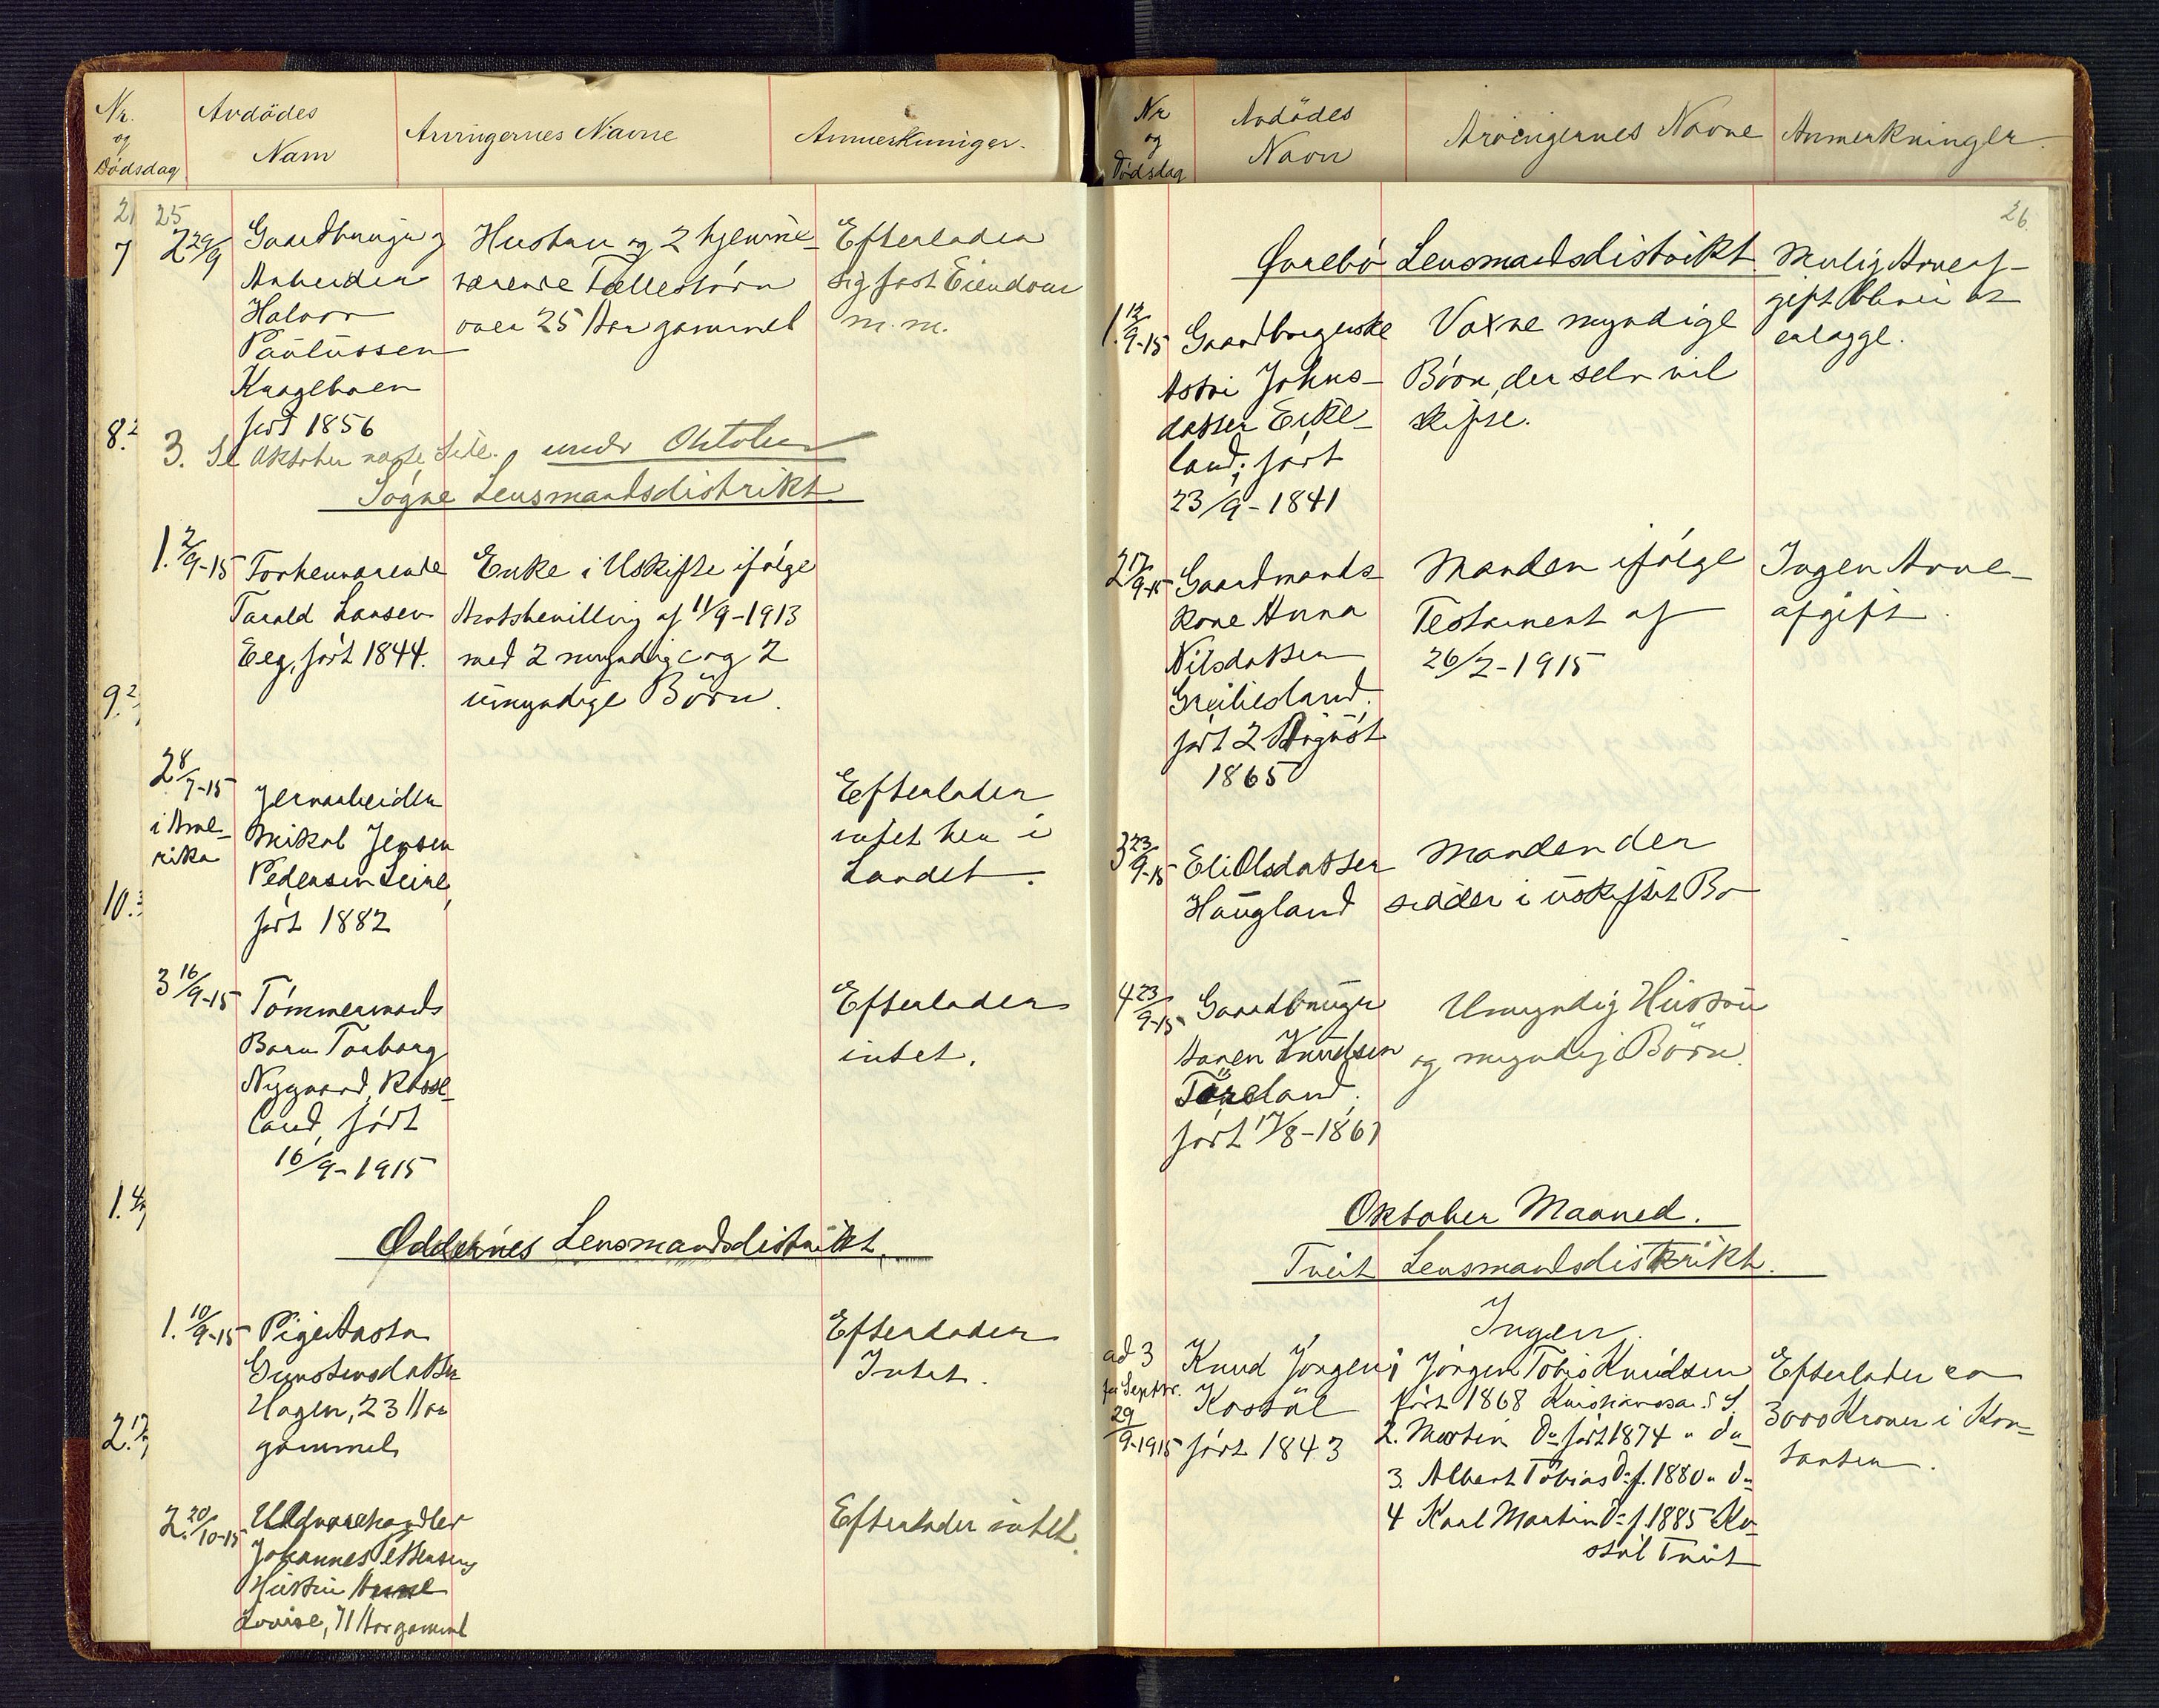 Nr. og Dödsdag
Avdödes Navn
Arvingernes Navne
Anmerkninger.
25
2 29/9
Gaardbruger og
Arbeider
Halvor
Paulussen
Krageboen
født 1856
Hustru og 2 hjemme-
værende Fællesbørn
over 25 Aar gammel
Efterlader
sig fast Eiendom
m. m.
3. Se Oktober næste Side. under Oktober
Søgne Lensmandsdistrikt
1. 2/9-15
Forhenværende
Tarald Larsen
Eeg, født 1844.
Enke i Uskifte ifølge
Amtsbevilling af 11/9-1913
med 2 myndige og 2
umyndige Börn.
2 8/7-15
i Ame-
rika
Jernarbeider
Mikal Jensen
Pedersen Leire,
født 1882
Efterlader
intet her i
Landet.
3 16/9-15
Tømmermands
Barn Torborg
Nygaard, Rosse-
land, født
16/9-1915
Efterlader
intet.
Oddernes Lensmandsdistrikt.
1. 10/9-15
Pige Aasta
Gunstensdatter
Hagen, 23 Aar
gammel
Efterlader
Intet.
2. 20/10-15
Uldvarehandler
Johannes Pettersens
Hustru Anne
Lovise, 71 Aar gammel
Efterlader intet.
7
8.
9.
10.
1.
2.
Nr og Dödsdag
Avdödes Navn
Arvingernes Navne
Anmerkninger.
26.
Øvrebö Lensmandsdistrikt
1. 12/9-15
Gaardbrugerske
Astri Johns-
datter Eike-
land; født
23/9-1841
Voxne myndige
Börn, der selv vil
skifte.
Mulig Arveaf-
gift blir at
erlægge.
2 17/9-15
Gaardmands
Kone Anna
Nilsdatter
Greibesland,
født 2 August
1865
Manden ifølge
Testament af
26/2-1915
Ingen Arve-
afgift.
3 23/9-15
Eli Olsdatter
Haugland
Manden der
sidder i uskiftet Bo
4 23/9-15
Gaardbruger
Aanen Knudsen
Føreland.
født 17/8-1861
Umyndig Hustru
og myndig Börn.
Oktober Maaned.
Tveit Lensmandsdistrikt.
Ingen.
ad 3
for Septbr.
29/9-1915
Knud Jørgen
Kostøl
født 1843
1 Jörgen Tobias Knudsen
født 1868 Kristianssand S.
2. Martin Do født 1874 " do
3. Albert Tobias Do f. 1880 " do
4 Karl Martin Do f. 1885 Ko-
støl Tveit
Efterlader ca
3000 Kroner i Kon-
tanten.